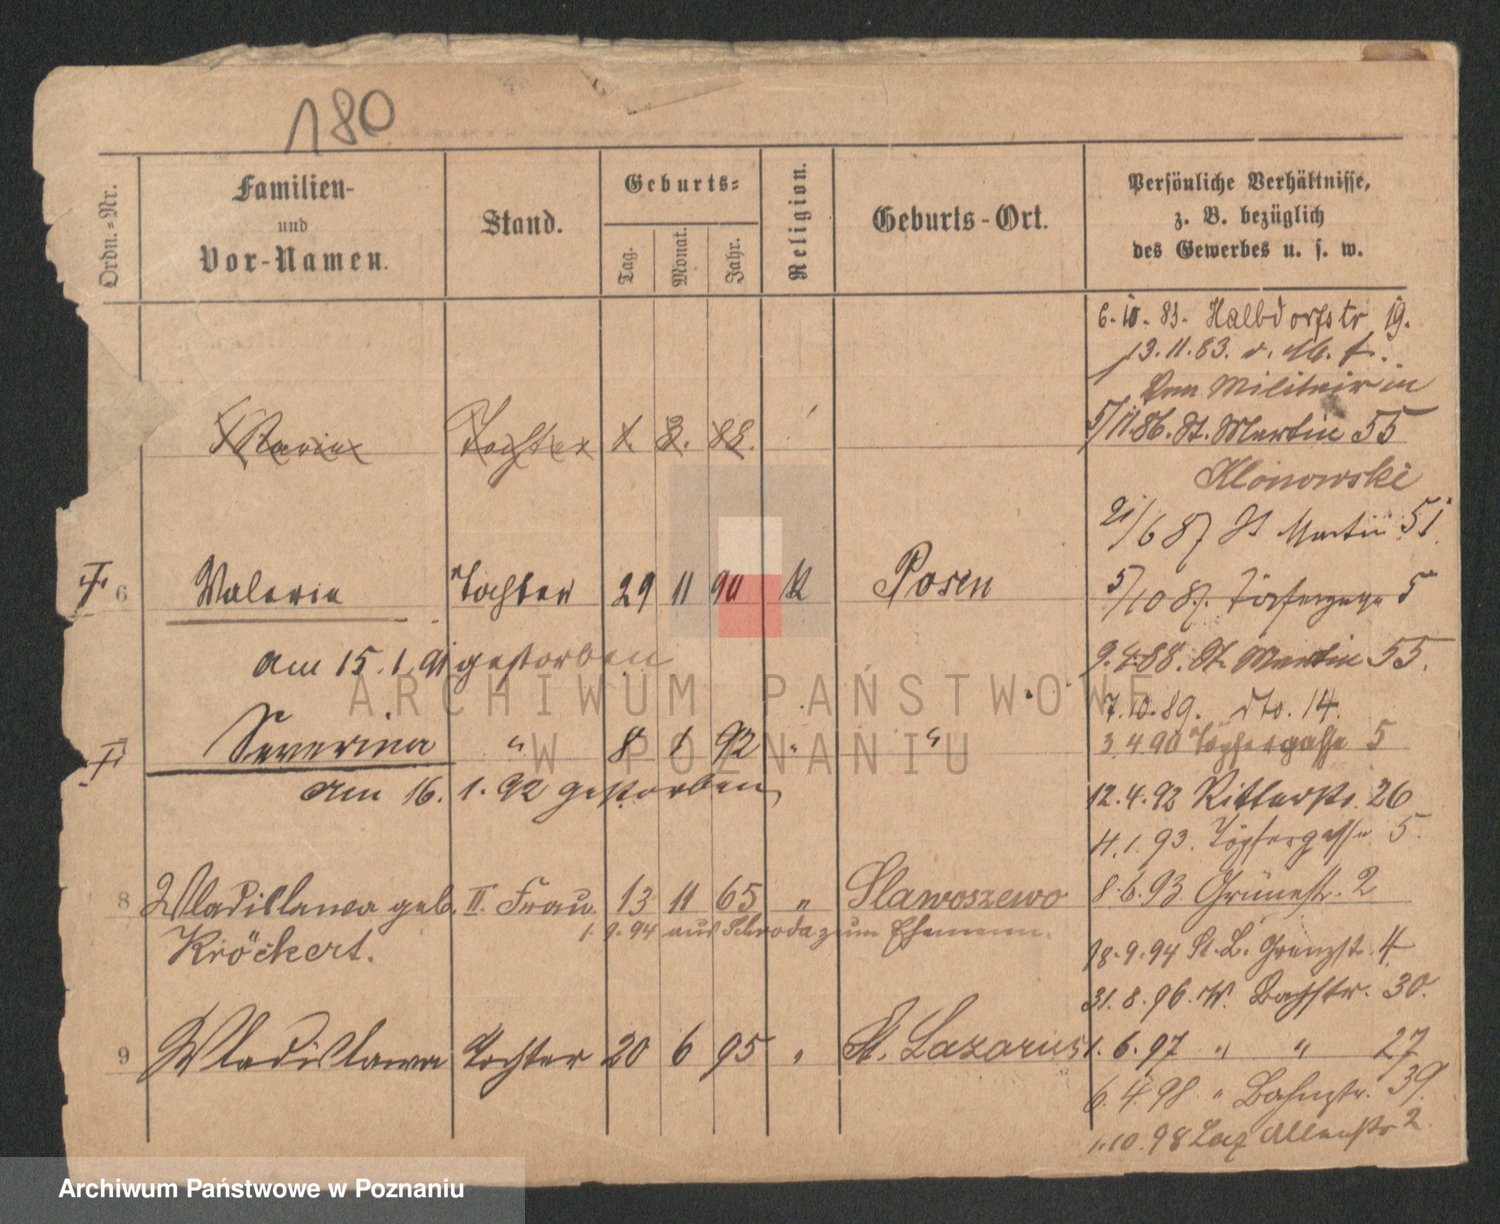 180
Ordn.-Nr.
Familien-
und
Vor-Namen.
Stand.
Geburts-
Tag.
Monat.
Jahr.
Religion.
Geburts-Ort.
Persönliche Verhältnisse,
z. B. bezüglich
des Gewerbes u. s. w.
6.10.83. Halbdorfstr 19.
13.11.83. v. M. f.
Militair in
Maria Tochter 1. 3. 88.
5/11.86. St. Martin 55
Klonowski
21/6 87 St Martin 51.
6 Valeria Tochter 29 11 90 k Posen
5/10 87. Töpfergasse 5
am 15.1.91 gestorben
9.4.88. St. Martin 55.
7.10.89. dto. 14.
7 Severina " 8 1 92 " "
3.4.90 Töpfergasse 5
am 16.1.92 gestorben
12.4.92 Ritterstr. 26
4.1.93. Töpfergasse 5.
8 Wladislawa geb. II. Frau 13 11 65 " Slawoszewo
8.6.93 Grünestr. 2
1.9.94 aus Schroda zum Ehemann.
Kröckert.
18.9.94 St. L. Grenzstr. 4
31.8.96. W. 30.
9 Wladislawa Tochter 20 6 95 " St. Lazarus
1.6.97 " " 27
6.4.98 " Bahnstr. 39.
1.10.98 Laz 2.
ARCHIWUM PAŃSTWOWE
W POZNANIU
Archiwum Państwowe w Poznaniu